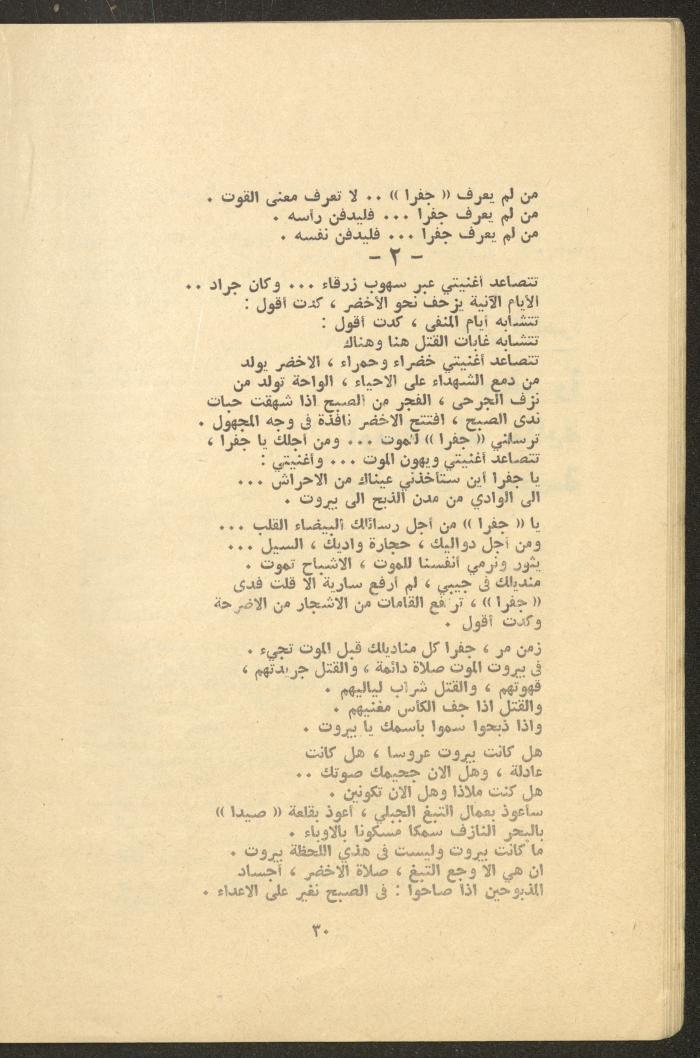 من لم يعرف (( جفرا )) .. لا تعرف معنى القوت .
من لم يعرف جفرا ... فليدفن رأسه .
من لم يعرف جفرا ... فليدفن نفسه .
- ٢ -
تتصاعد أغنيتي عبر سهوب زرقاء ... وكان جراد ..
الأيام الآنية يزحف نحو الأخضر ، كدت أقول :
تتشابه أيام المنفى ، كدت أقول :
تتشابه غابات القتل هنا وهناك
تتصاعد أغنيتي خضراء وحمراء ، الاخضر يولد
من دمع الشهداء على الاحياء ، الواحة تولد من
نزف الجرحى ، الفجر من الصبح اذا شهقت حبات
ندى الصبح ، افتتح الاخضر نافذة فى وجه المجهول .
ترسلني (( جفرا )) للموت ... ومن أجلك يا جفرا ،
تتصاعد أغنيتي ويهون الموت ... وأغنيتي :
يا جفرا أين ستأخذني عيناك من الاحراش ...
الى الوادي من مدن الذبح الى بيروت .
يا (( جفرا )) من أجل رسائلك البيضاء القلب ...
ومن أجل دواليك ، حجارة واديك ، السيل ...
يثور ونرمي أنفسنا للموت ، الاشباح تموت .
منديلك فى جيبي ، لم أرفع سارية الا قلت فدى
(( جفرا )) ، ترتفع القامات من الاشجار من الاضرحة
وكدت أقول .
زمن مر ، جفرا كل مناديلك قبل الموت تجيء .
فى بيروت الموت صلاة دائمة ، والقتل جريدتهم ،
قهوتهم ، والقتل شراب لياليهم .
والقتل اذا جف الكأس مغنيهم .
واذا ذبحوا سموا بأسمك يا بيروت .
هل كانت بيروت عروسا ، هل كانت
عادلة ، وهل الان جحيمك صوتك ..
هل كنت ملاذا وهل الان تكونين .
سأعوذ بعمال التبغ الجبلي ، أعوذ بقلعة (( صيدا ))
بالبحر النازف سمكا مسكونا بالاوباء .
ما كانت بيروت وليست فى هذي اللحظة بيروت .
ان هي الا وجع التبغ ، صلاة الاخضر ، أجساد
المذبوحين اذا صاحوا : فى الصبح نغير على الاعداء .
٣٠